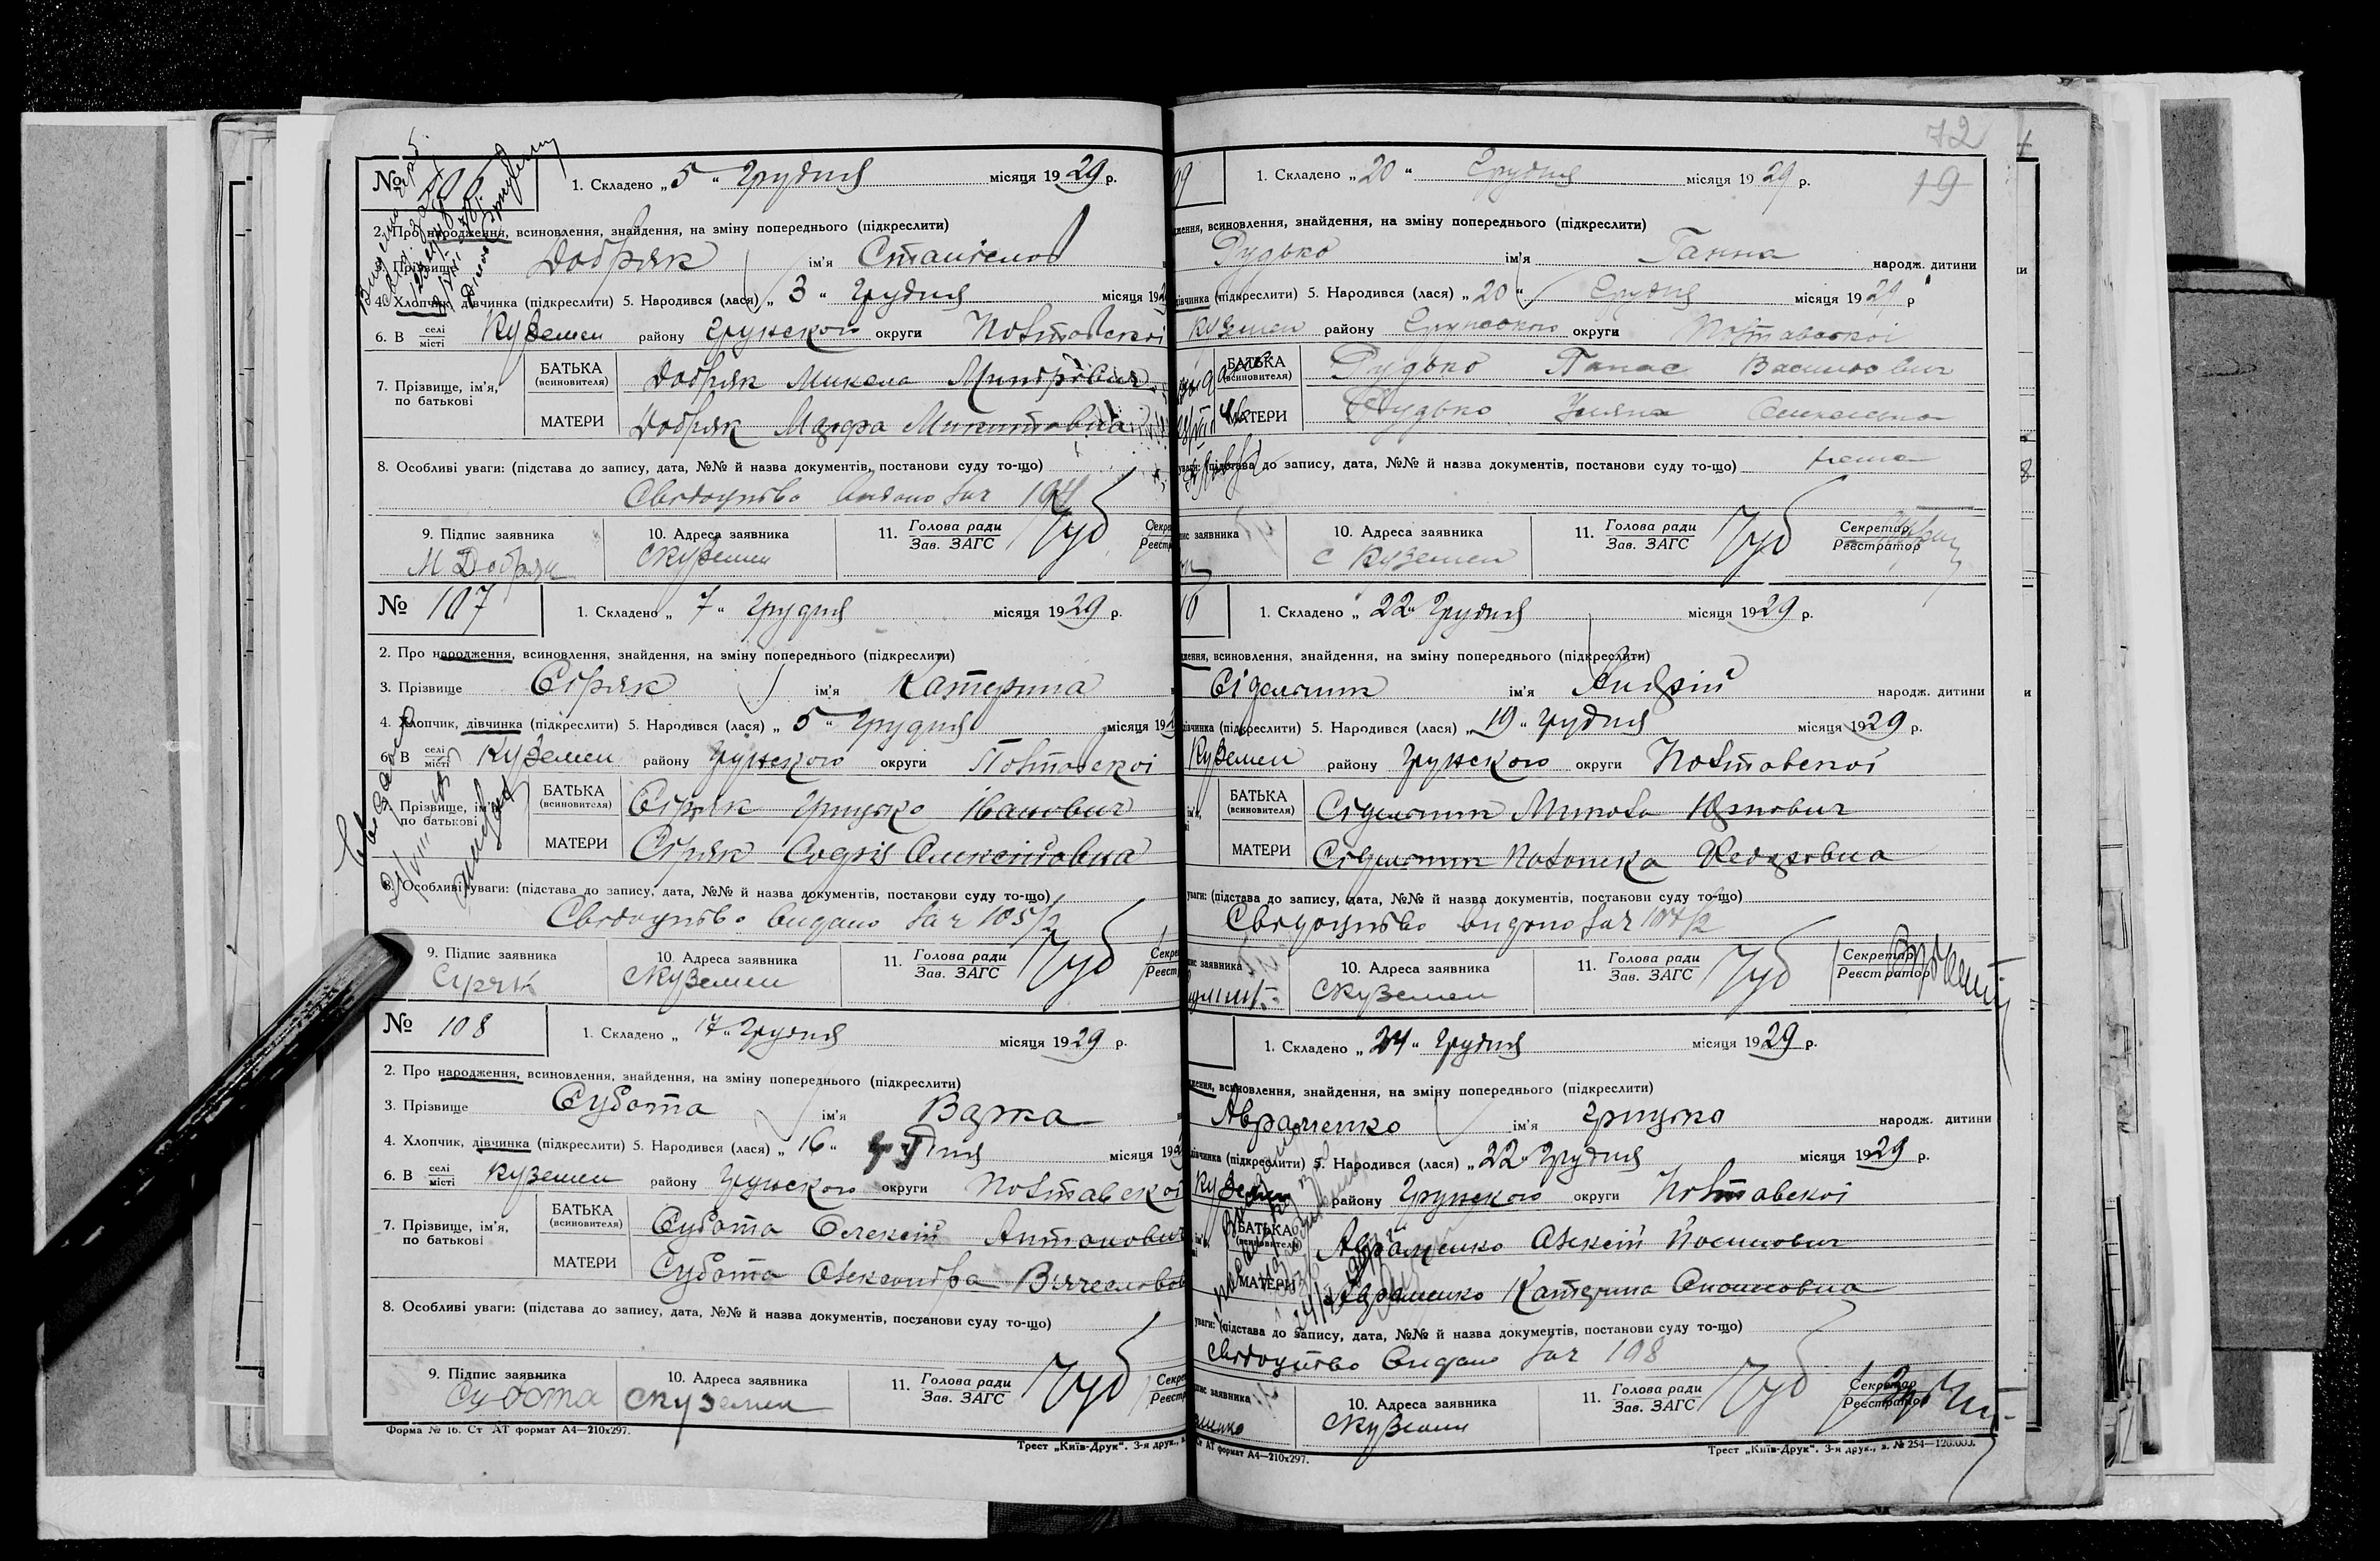 № 106
1. Складено „ 5 “ Грудня місяця 1929 р.
2. Про народження, всиновлення, знайдення, на зміну попереднього (підкреслити)
3. Прізвище Добряк ім'я
4. Хлопчик, дівчинка (підкреслити) 5. Народився (лася) „ 3 “ Грудня місяця 19
6. В селі місті Куземен району Грунского округи Полтавскої
7. Прізвище, ім'я, по батькові
БАТЬКА (всиновителя) Добряк Микола Митрович
МАТЕРИ Добряк Марфа Микитовна
8. Особливі уваги: (підстава до запису, дата, №№ й назва документів, постанови суду то-що)
Свідоцтво видано за №
9. Підпис заявника 10. Адреса заявника 11. Голова ради Зав. ЗАГС
М Добряк с Куземен
№ 107
1. Складено „ 7 “ Грудня місяця 1929 р.
2. Про народження, всиновлення, знайдення, на зміну попереднього (підкреслити)
3. Прізвище Сіряк ім'я Катерина
4. Хлопчик, дівчинка (підкреслити) 5. Народився (лася) „ 5 “ Грудня місяця 19
6. В селі місті Куземен району Грунского округи Полтавскої
7. Прізвище, ім'я, по батькові
БАТЬКА (всиновителя) Сіряк Грицько Іванович
МАТЕРИ Сіряк Софія Олексіївна
8. Особливі уваги: (підстава до запису, дата, №№ й назва документів, постанови суду то-що)
Свідоцтво видано за № 105/2
9. Підпис заявника 10. Адреса заявника 11. Голова ради Зав. ЗАГС
Сіряк с Куземен
№ 108
1. Складено „ 17 “ Грудня місяця 1929 р.
2. Про народження, всиновлення, знайдення, на зміну попереднього (підкреслити)
3. Прізвище Субота ім'я Варка
4. Хлопчик, дівчинка (підкреслити) 5. Народився (лася) „ 16 “ Грудня місяця 19
6. В селі місті Куземен району Грунского округи Полтавскої
7. Прізвище, ім'я, по батькові
БАТЬКА (всиновителя) Субота Олексій Антонович
МАТЕРИ Субота Олександра
8. Особливі уваги: (підстава до запису, дата, №№ й назва документів, постанови суду то-що)
9. Підпис заявника 10. Адреса заявника 11. Голова ради Зав. ЗАГС
Субота с Куземен
Форма № 16. Ст АТ формат А4—210х297.
Трест „Київ-Друк“. 3-я друк.,
72
19
1. Складено „ 20 “ Грудня місяця 1929 р.
всиновлення, знайдення, на зміну попереднього (підкреслити)
Рудько ім'я Ганна народж. дитини
дівчинка (підкреслити) 5. Народився (лася) „ 20 “ Грудня місяця 1929 р
Куземен району Грунского округи Полтавскої
БАТЬКА (всиновителя) Рудько Панас Васильович
МАТЕРИ Рудько Уляна
уваги: (підстава до запису, дата, №№ й назва документів, постанови суду то-що) нема
заявника 10. Адреса заявника 11. Голова ради Зав. ЗАГС Секретар Реєстратор
с Куземен
1. Складено „ 22 “ Грудня місяця 1929 р.
всиновлення, знайдення, на зміну попереднього (підкреслити)
ім'я Андрій народж. дитини
дівчинка (підкреслити) 5. Народився (лася) „ 19 “ Грудня місяця 1929 р.
Куземен району Грунского округи Полтавскої
БАТЬКА (всиновителя) Микола
МАТЕРИ Федоровна
уваги: (підстава до запису, дата, №№ й назва документів, постанови суду то-що)
Свідоцтво видано за № 107/2
заявника 10. Адреса заявника 11. Голова ради Зав. ЗАГС Секретар Реєстратор
с Куземен
1. Складено „ 24 “ Грудня місяця 1929 р.
всиновлення, знайдення, на зміну попереднього (підкреслити)
Авраменко ім'я Грицько народж. дитини
дівчинка (підкреслити) 5. Народився (лася) „ 22 “ Грудня місяця 1929 р.
Куземен району Грунского округи Полтавскої
БАТЬКА (всиновителя) Авраменко Олексій Йосипович
МАТЕРИ Авраменко Катерина
уваги: (підстава до запису, дата, №№ й назва документів, постанови суду то-що)
Свідоцтво видано за № 108
заявника 10. Адреса заявника 11. Голова ради Зав. ЗАГС Секретар Реєстратор
с Куземен
АТ формат А4—210х297.
Трест „Київ-Друк“. 3-я друк., з. № 254—120.000.